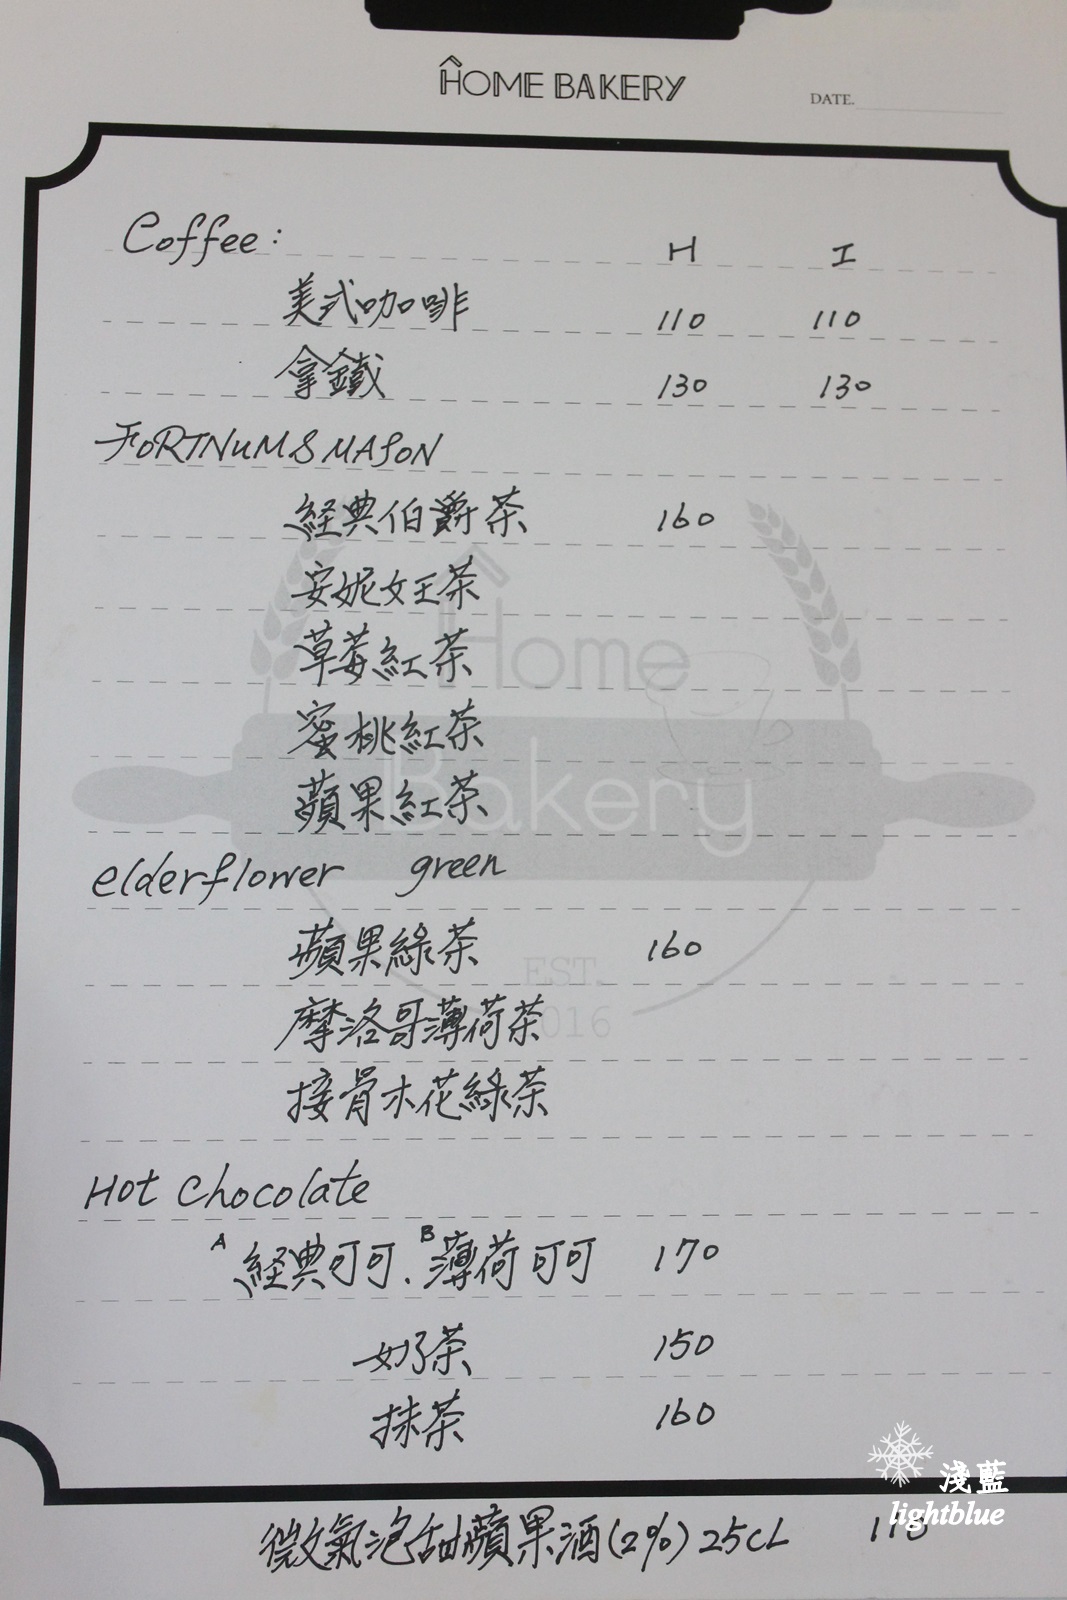 HOME BAKERY
DATE.
Coffee: H I
美式咖啡 110 110
拿鐵 130 130
FORTNUM & MASON
経典伯爵茶 160
安妮女王茶
草莓紅茶
蜜桃紅茶
蘋果紅茶
elderflower green
蘋果綠茶 160
摩洛哥薄荷茶
接骨木花綠茶
Hot Chocolate
A 経典可可. B 薄荷可可 170
奶茶 150
抹茶 160
微氣泡甜蘋果酒(2%) 25CL
Home
Bakery
EST.
2016
淺藍
lightblue